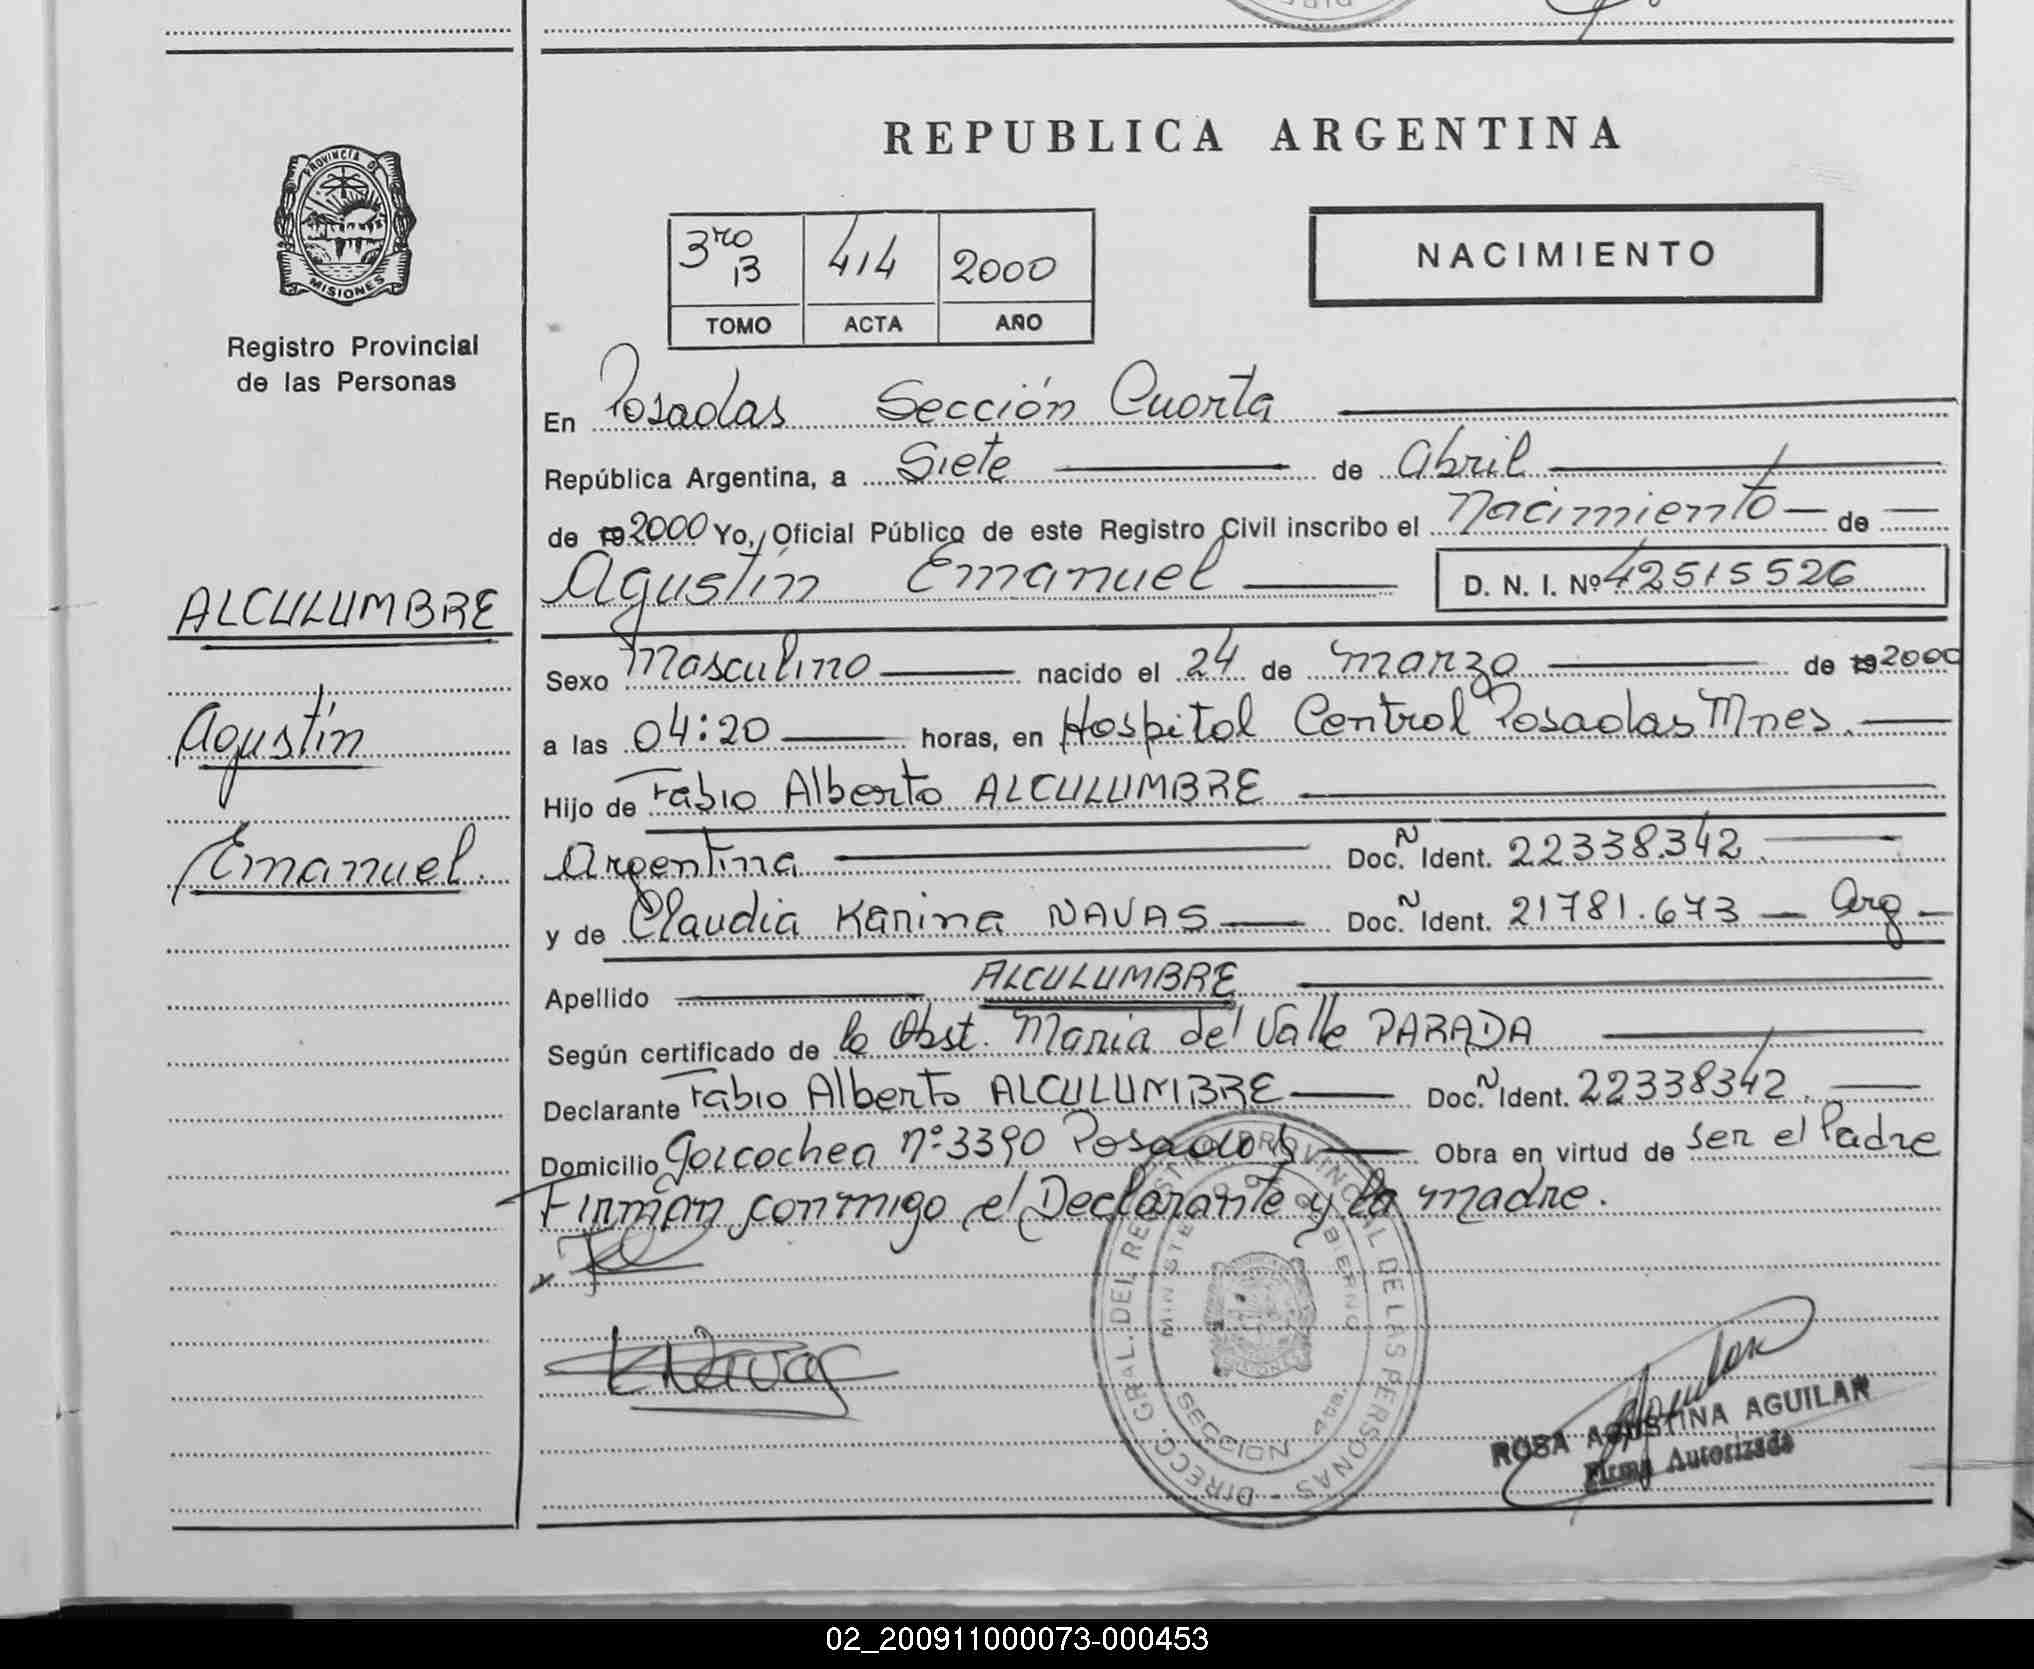 REPUBLICA ARGENTINA
PROVINCIA DE
MISIONES
Registro Provincial
de las Personas
3ro B 414 2000
TOMO ACTA AÑO
NACIMIENTO
En Posadas Sección Cuarta
República Argentina, a Siete de abril
de 19 2000 Yo, Oficial Público de este Registro Civil inscribo el Nacimiento de
Agustín Emanuel D. N. I. Nº 42515526
ALCULUMBRE
Sexo Masculino nacido el 24 de marzo de 19 2000
Agustín
a las 04:20 horas, en Hospital Central Posadas Mnes.
Hijo de Fabio Alberto ALCULUMBRE
Emanuel.
Argentina Doc. N Ident. 22338.342
y de Claudia Karina NAVAS Doc. N Ident. 21781.673 Arg
Apellido ALCULUMBRE
Según certificado de la Obst. Maria del Valle PARADA
Declarante Fabio Alberto ALCULUMBRE Doc. N Ident. 22338342
Domicilio Goicochea nº 3390 Posadas Obra en virtud de ser el Padre
Firman conmigo el Declarante y la madre.
KNavas
DIRECC. GRAL. DEL REGISTRO PROVINCIAL DE LAS PERSONAS
MINISTERIO DE GOBIERNO
SECCION 4ta.
ROSA AGUSTINA AGUILAR
Firma Autorizada
02_200911000073-000453